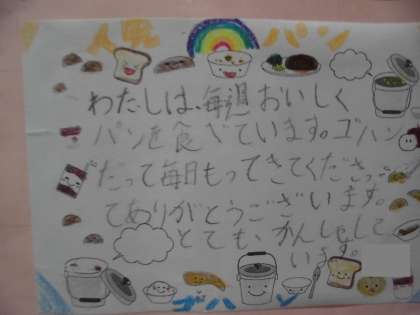 人気 パン
わたしは、毎週おいしく
パンを食べています。ゴハン
たって毎日もってきてくださっ
てありがとうございます。
とても、かんしゃして
います。
ゴハン